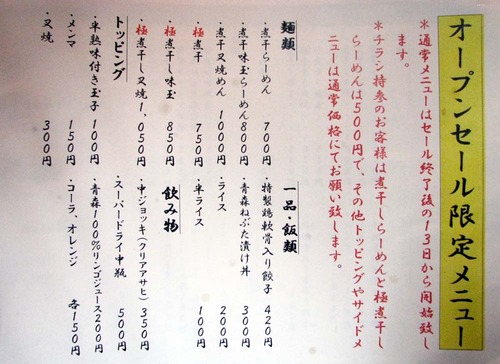 オープンセール限定メニュー
＊通常メニューはセール終了後の13日から開始致し
ます。
＊チラシ持参のお客様は煮干しらーめんと極煮干し
らーめんは500円で、その他トッピングやサイドメ
ニューは通常価格にてお願い致します。
麺類
・煮干らーめん 700円
・煮干味玉らーめん 800円
・煮干叉焼めん 1000円
・極煮干 750円
・極煮干し味玉 850円
・極煮干し叉焼 1,050円
トッピング
・半熟味付き玉子 100円
・メンマ 150円
・叉焼 300円
一品・飯類
・特製鶏軟骨入り餃子 420円
・青森ねぶた漬け丼 300円
・ライス 200円
・半ライス 100円
飲み物
・中ジョッキ(クリアアサヒ) 350円
・スーパードライ中瓶 500円
・青森100%リンゴジュース 200円
・コーラ、オレンジ 各150円